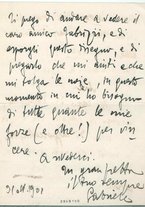 Ti prego di andare a vedere il
caro amico Fabrizi, e di
esporgli questo disegno, e di
pregarlo che mi aiuti e che
mi tolga le noje, in questo
momento in cui ho bisogno
di tutte quante le mie
forze (e oltre!) per vin-
cere. a rivederci.
In gran fretta
il tuo sempre
Gabriele
1901